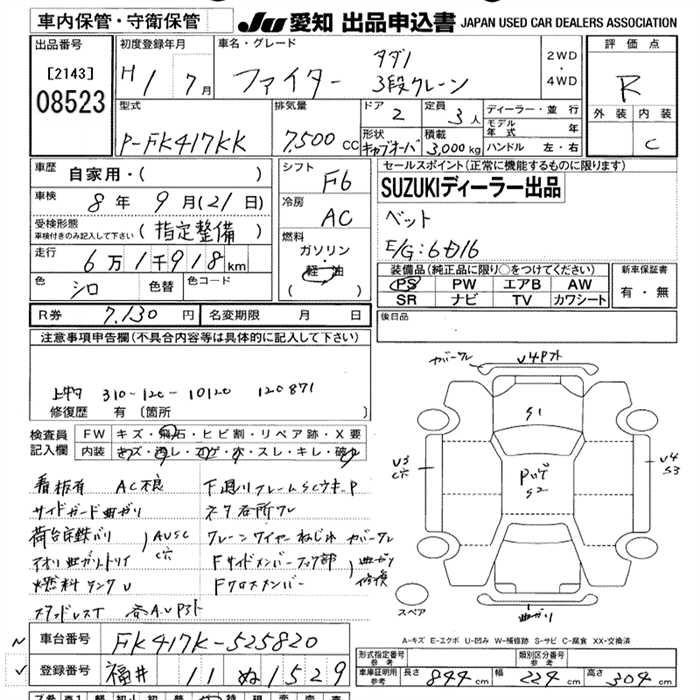 車内保管・守衛保管
JU 愛知 出品申込書 JAPAN USED CAR DEALERS ASSOCIATION
出品番号 [2143] 08523
初度登録年月 H1 7月
車名・グレード ファイター タダノ 3段クレーン
2WD・4WD
評価点 R
外装 内装 C
型式 P-FK417KK
排気量 7,500 CC
ドア 2
定員 3人
形状 キャブオーバ
積載 3,000 kg
ディーラー・並行
モデル年式 年
ハンドル 左・右
車歴 自家用・( )
シフト F6
セールスポイント(正常に機能するものに限ります)
SUZUKIディーラー出品
車検 8年 9月(21日)
冷房 AC
ベット
受検形態 車検付きのみ記入して下さい (指定整備)
燃料 ガソリン・軽油 ( )
E/G:6D16
走行 6万1千918km
装備品(純正品に限り○をつけてください)
PS PW エアB AW
SR ナビ TV カワシート
新車保証書 有・無
色 シロ 色替 色コード
R券 7,130円 名変期限 月 日
後日品
注意事項申告欄(不具合内容等は具体的に記入して下さい)
上中9 310-120-10120 120871
修復歴 有 〔箇所
検査員記入欄
FW キズ・飛石・ヒビ割・リペア跡・X要
内装 キズ・汚レ・コゲ・穴・スレ・キレ・破レ
看板有 AC不良 下廻りフレームSCウキP
サイドガード曲ガリ
荷台床鉄バリ AUSC穴
クレーンワイヤーねじれ カバーワレ
アオリ曲ガリ
Fサイドメンバー
燃料タンクU Fクロスメンバー 曲ガリ修復
カバーワレ V4Pカト
S1
V3 C穴
S2
V4 S3
曲ガリ
スペア
A-キズ E-エクボ U-凹み W-補修跡 S-サビ C-腐食 XX-交換済
車台番号 FK417K-525820
登録番号 福井 11 ぬ 1529
形式指定番号 参考 類別区分番号 参考
車庫証明用 参考 長さ 844cm 幅 224cm 高さ 304cm